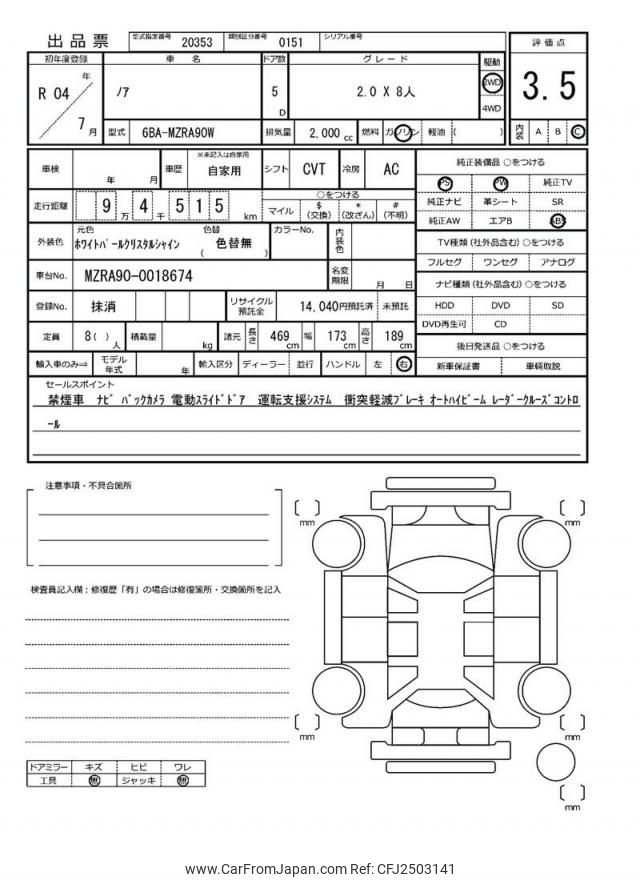 出品票
型式指定番号 20353 類別区分番号 0151 シリアル番号
初年度登録 車名 ドア数 グレード 駆動 評価点
R 04 年 7 月
ﾉｱ 5 D 2.0 X 8人 2WD 4WD 3.5
型式 6BA-MZRA90W 排気量 2,000 cc 燃料 ガソリン 軽油 ( ) 内装 A B C
車検 年 月 車歴 ※未記入は自家用 自家用 シフト CVT 冷房 AC
走行距離 9 万 4 千 5 1 5 km
○をつける
マイル $ (交換) * (改ざん) # (不明)
外装色 元色 ﾎﾜｲﾄﾊﾟｰﾙｸﾘｽﾀﾙｼｬｲﾝ 色替 ( 色替無 ) カラーNo. 内装色
車台No. MZRA90-0018674 名変期限 月 日
登録No. 抹消 リサイクル預託金 14,040円預託済 未預託
定員 8 ( ) 人 積載量 kg 諸元 長さ 469 cm 幅 173 cm 高さ 189 cm
輸入車のみ⇒ モデル年式 年 輸入区分 ディーラー 並行 ハンドル 左 右
純正装備品 ○をつける
PS PW 純正TV
純正ナビ 革シート SR
純正AW エアB ABS
TV種類 (社外品含む) ○をつける
フルセグ ワンセグ アナログ
ナビ種類 (社外品含む) ○をつける
HDD DVD SD
DVD再生可 CD
後日発送品 ○をつける
新車保証書 車輌取説
セールスポイント
禁煙車 ﾅﾋﾞ ﾊﾞｯｸｶﾒﾗ 電動ｽﾗｲﾄﾞﾄﾞｱ 運転支援ｼｽﾃﾑ 衝突軽減ﾌﾞﾚｰｷ ｵｰﾄﾊｲﾋﾞｰﾑ ﾚｰﾀﾞｰｸﾙｰｽﾞｺﾝﾄﾛ
ｰﾙ
注意事項・不具合箇所
検査員記入欄：修復歴「有」の場合は修復箇所・交換箇所を記入
mm
mm
mm
mm
mm
ドアミラー キズ ヒビ ワレ
工具 無 ジャッキ 無
www.CarFromJapan.com Ref: CFJ2503141